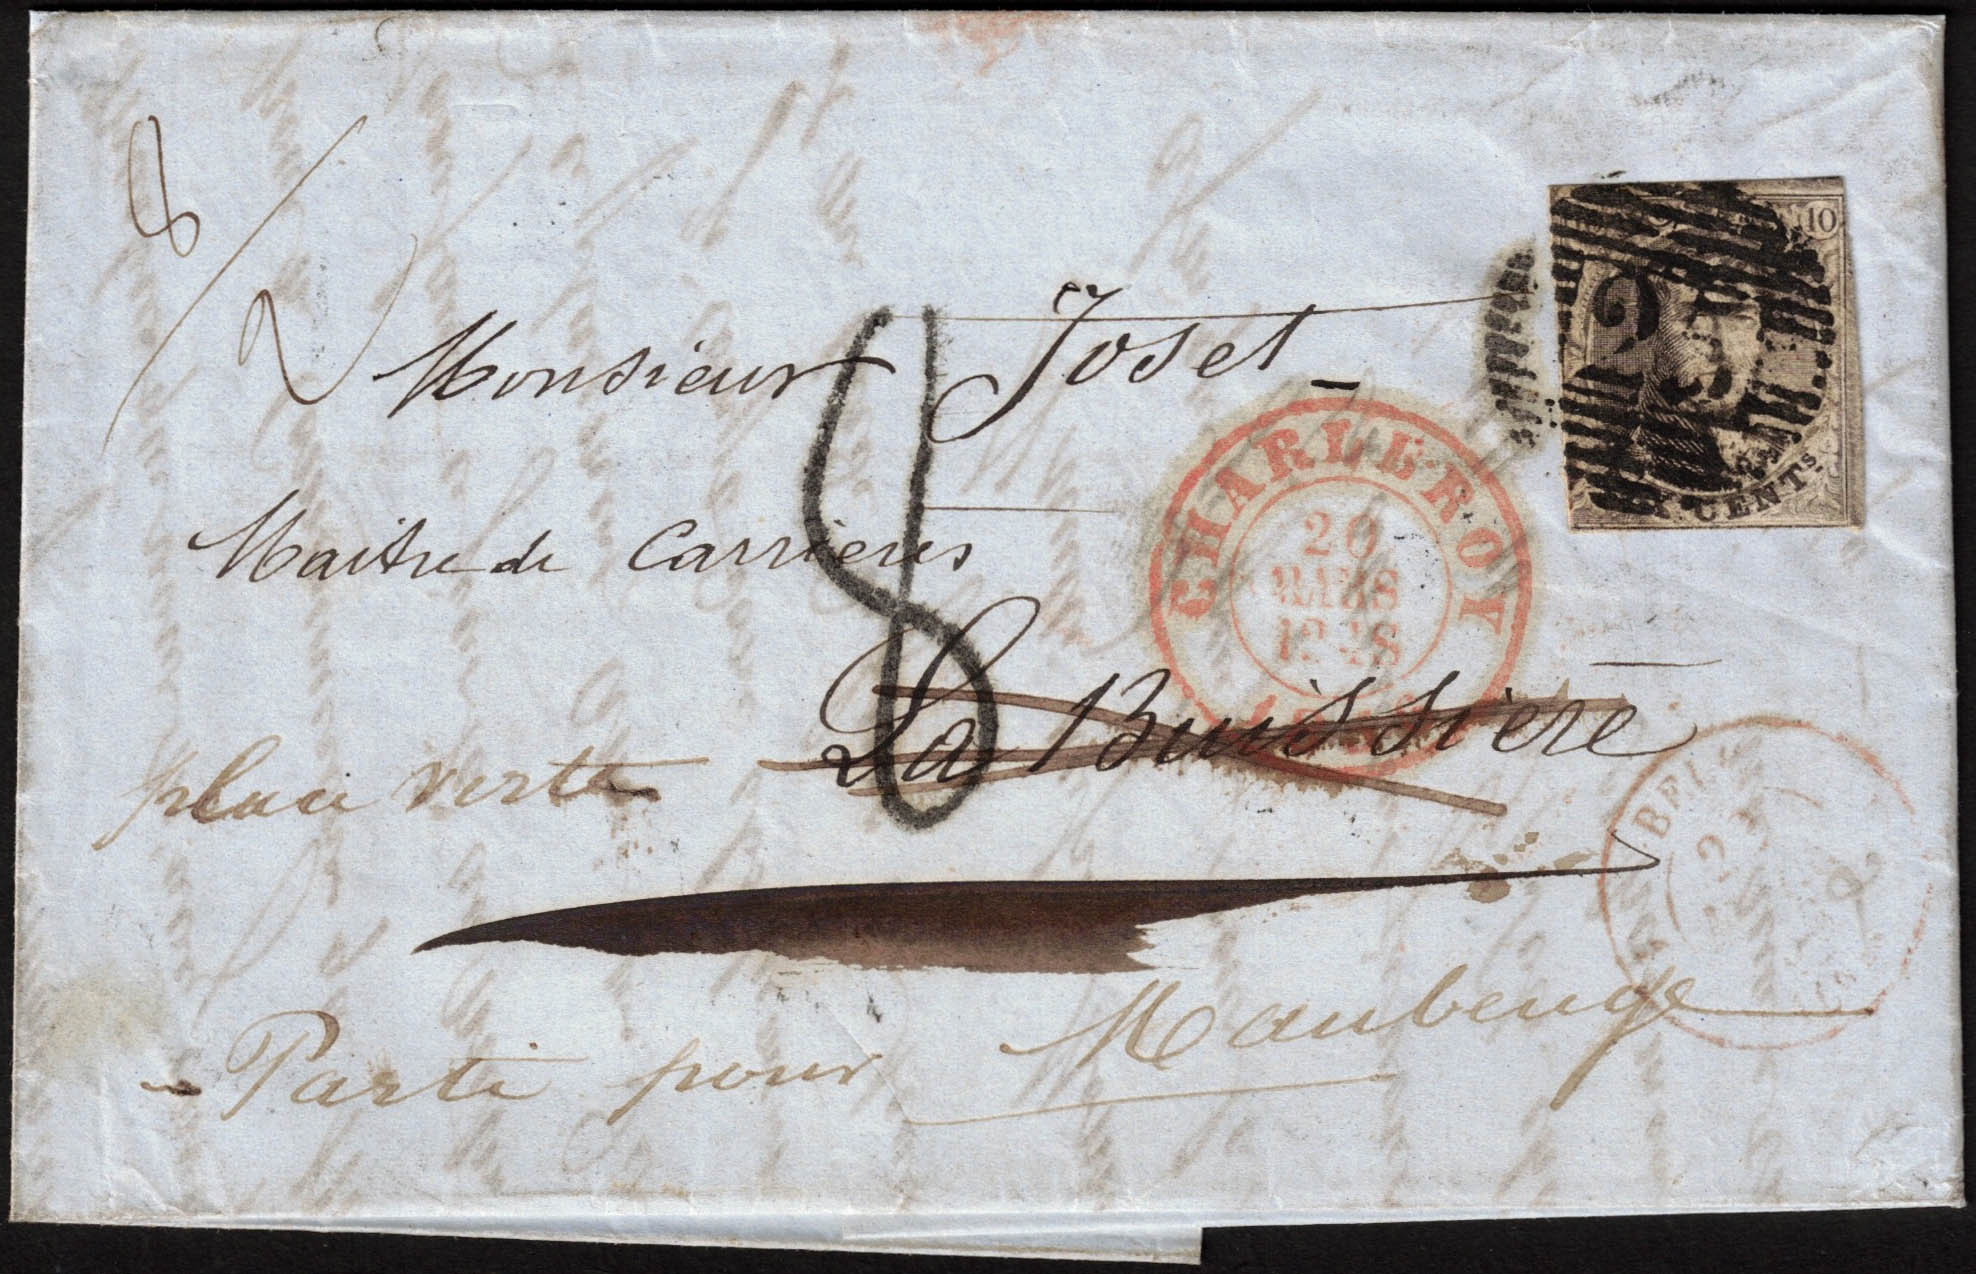 8/2
10
Monsieur Joset
CHARLEROY
20
MARS
X. CENTs.
Maitre de Carrières
8
La Buissière
place verte
BELG
Parti pour Maubeuge